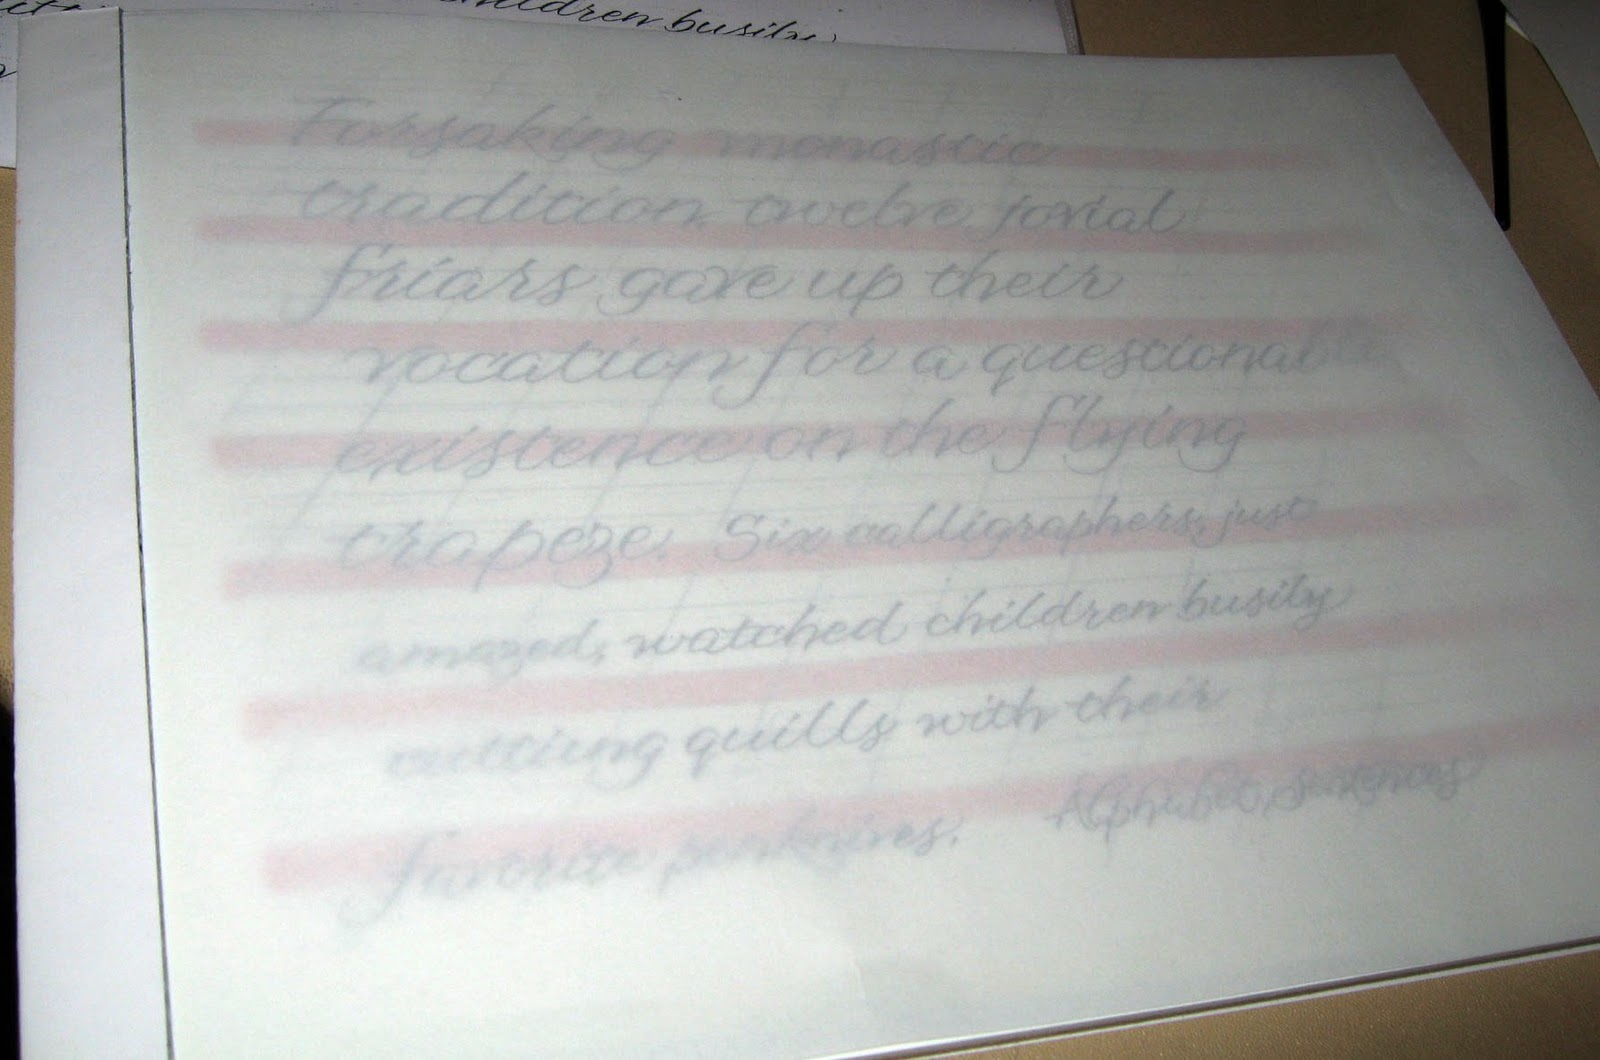 children busily
Forsaking monastic
tradition twelve jovial
friars gave up their
vocation for a questional
existence on the flying
trapeze. Six calligraphers, just
amazed, watched children busily
cutting quills with their
favorite penknives. Alphabet sentences